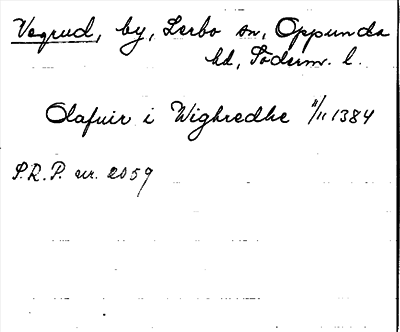 Vegrud, by, Lerbo sn, Oppunda
hd, Söderm. l.
Olafuir i Wighredhe 11/11 1384
P.R.P. nr. 2059